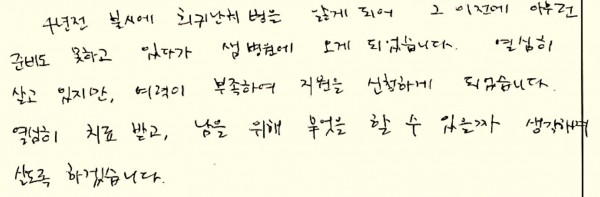 4년전 불시에 희귀난치병을 앓게 되어 그 이전에 아무런
준비도 못하고 있다가 샘병원에 오게 되었습니다. 열심히
살고 있지만, 여력이 부족하여 지원을 신청하게 되었습니다.
열심히 치료 받고, 남을 위해 무엇을 할 수 있을까 생각하며
살도록 하겠습니다.